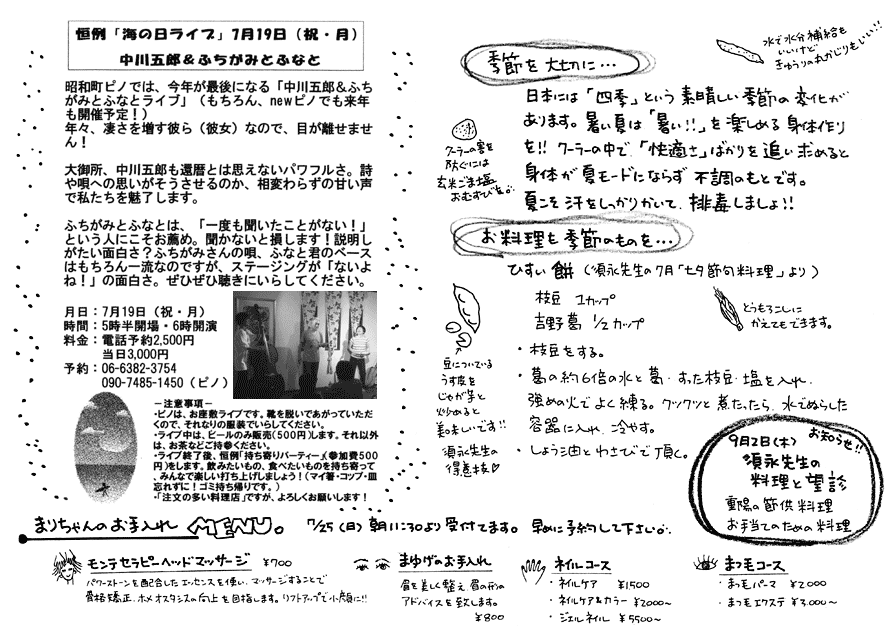 恒例「海の日ライブ」7月19日（祝・月）
中川五郎＆ふちがみとふなと
昭和町ピノでは、今年が最後になる「中川五郎＆ふち
がみとふなとライブ」（もちろん、newピノでも来年
も開催予定！）
年々、凄さを増す彼ら（彼女）なので、目が離せませ
ん！
大御所、中川五郎も還暦とは思えないパワフルさ。詩
や唄への思いがそうさせるのか、相変わらずの甘い声
で私たちを魅了します。
ふちがみとふなとは、「一度も聞いたことがない！」
という人にこそお薦め。聞かないと損します！説明し
がたい面白さ？ふちがみさんの唄、ふなと君のベース
はもちろん一流なのですが、ステージングが「ないよ
ね！」の面白さ。ぜひぜひ聴きにいらしてください。
月日：7月19日（祝・月）
時間：5時半開場・6時開演
料金：電話予約2,500円
当日3,000円
予約：06-6382-3754
090-7485-1450（ピノ）
－注意事項－
・ピノは、お座敷ライブです。靴を脱いであがっていただ
くので、それなりの服装でいらしてください。
・ライブ中は、ビールのみ販売（500円）します。それ以外
は、お茶などご持参ください。
・ライブ終了後、恒例「持ち寄りパーティー」（参加費500
円）をします。飲みたいもの、食べたいものを持ち寄って
、みんなで楽しい打ち上げしましょう！（マイ箸・コップ・皿
忘れずに！ゴミ持ち帰りです。）
・「注文の多い料理店」ですが、よろしくお願いします！
季節を大切に…
水で水分補給も
いいけど
きゅうりの丸かじりもいい!!
日本には「四季」という素晴しい季節の変化が
あります。暑い夏は「暑い!!」を楽しめる身体作り
を!! クーラーの中で、「快適さ」ばかりを追い求めると
身体が夏モードにならず不調のもとです。
夏こそ汗をしっかりかいて、排毒しましょ!!
クーラーの害を
防ぐには
玄米ごま塩
おむすびを
お料理も季節のものを…
ひすい餅（須永先生の7月「七夕節句料理」より）
枝豆 1カップ
吉野葛 1/2カップ
・枝豆をする。
・葛の約6倍の水と葛・すった枝豆・塩を入れ、
強めの火でよく練る。クックッと煮たったら、水でぬらした
容器に入れ、冷やす。
・しょう油とわさびで頂く。
とうもろこしに
かえてもできます。
豆についている
うす皮を
じゃが芋と
炒めると
美味しいです!!
須永先生の
得意技♡
お知らせ!!
9月2日（木）
須永先生の
料理と望診
重陽の節供料理
お手当てのための料理
まりちゃんのお手入れ MENU。 7/25（日）朝11:30より受付てます。早めに予約して下さい。
モンテセラピーヘッドマッサージ ￥700
パワーストーンを配合したエッセンスを使い、マッサージすることで
骨格矯正、ホメオスタシスの向上を目指します。リフトアップで小顔に!!
まゆげのお手入れ
眉を美しく整え眉の形の
アドバイスを致します。
￥800
ネイルコース
・ネイルケア ￥1500
・ネイルケア＆カラー ￥2000～
・ジェルネイル ￥5500～
まつ毛コース
・まつ毛パーマ ￥2000
・まつ毛エクステ ￥3000～